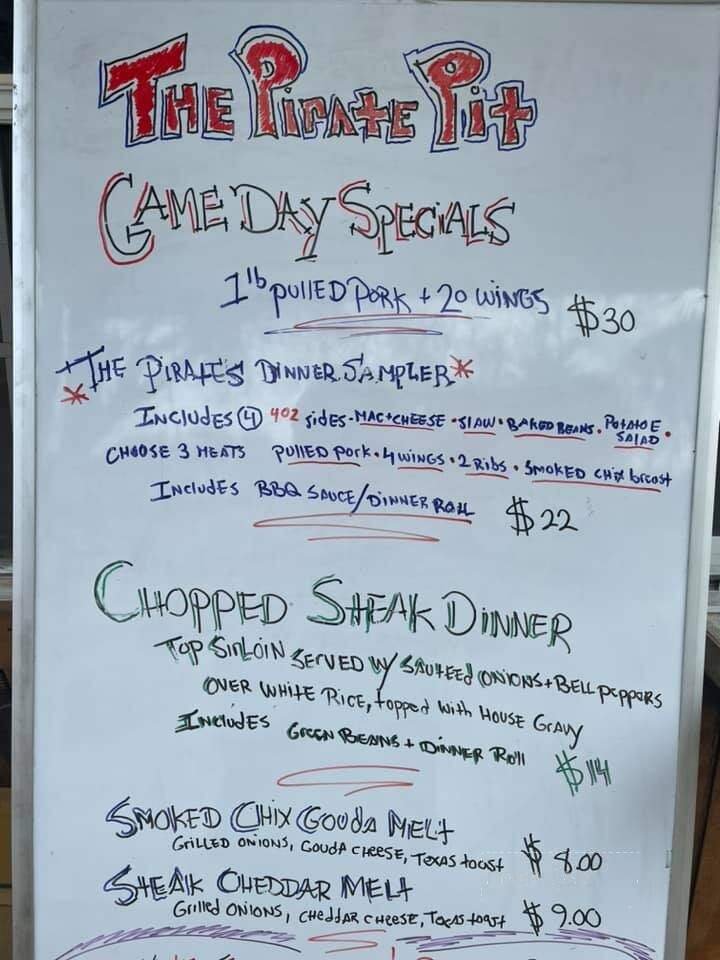 THE PIRATE PIT
GAME DAY SPECIALS
1lb PULLED PORK + 20 WINGS $30
*THE PIRATE'S DINNER SAMPLER*
INCLUDES (4) 4OZ SIDES - MAC+CHEESE • SLAW • BAKED BEANS • POTATOE SALAD •
CHOOSE 3 MEATS PULLED PORK • 4 WINGS • 2 RIBS • SMOKED CHIX BREAST
INCLUDES BBQ SAUCE/DINNER ROLL $22
CHOPPED STEAK DINNER
TOP SIRLOIN SERVED W/ SAUTEED ONIONS + BELL PEPPERS
OVER WHITE RICE, TOPPED WITH HOUSE GRAVY
INCLUDES GREEN BEANS + DINNER ROLL $14
SMOKED CHIX GOUDA MELT
GRILLED ONIONS, GOUDA CHEESE, TEXAS TOAST $8.00
STEAK CHEDDAR MELT
GRILLED ONIONS, CHEDDAR CHEESE, TEXAS TOAST $9.00